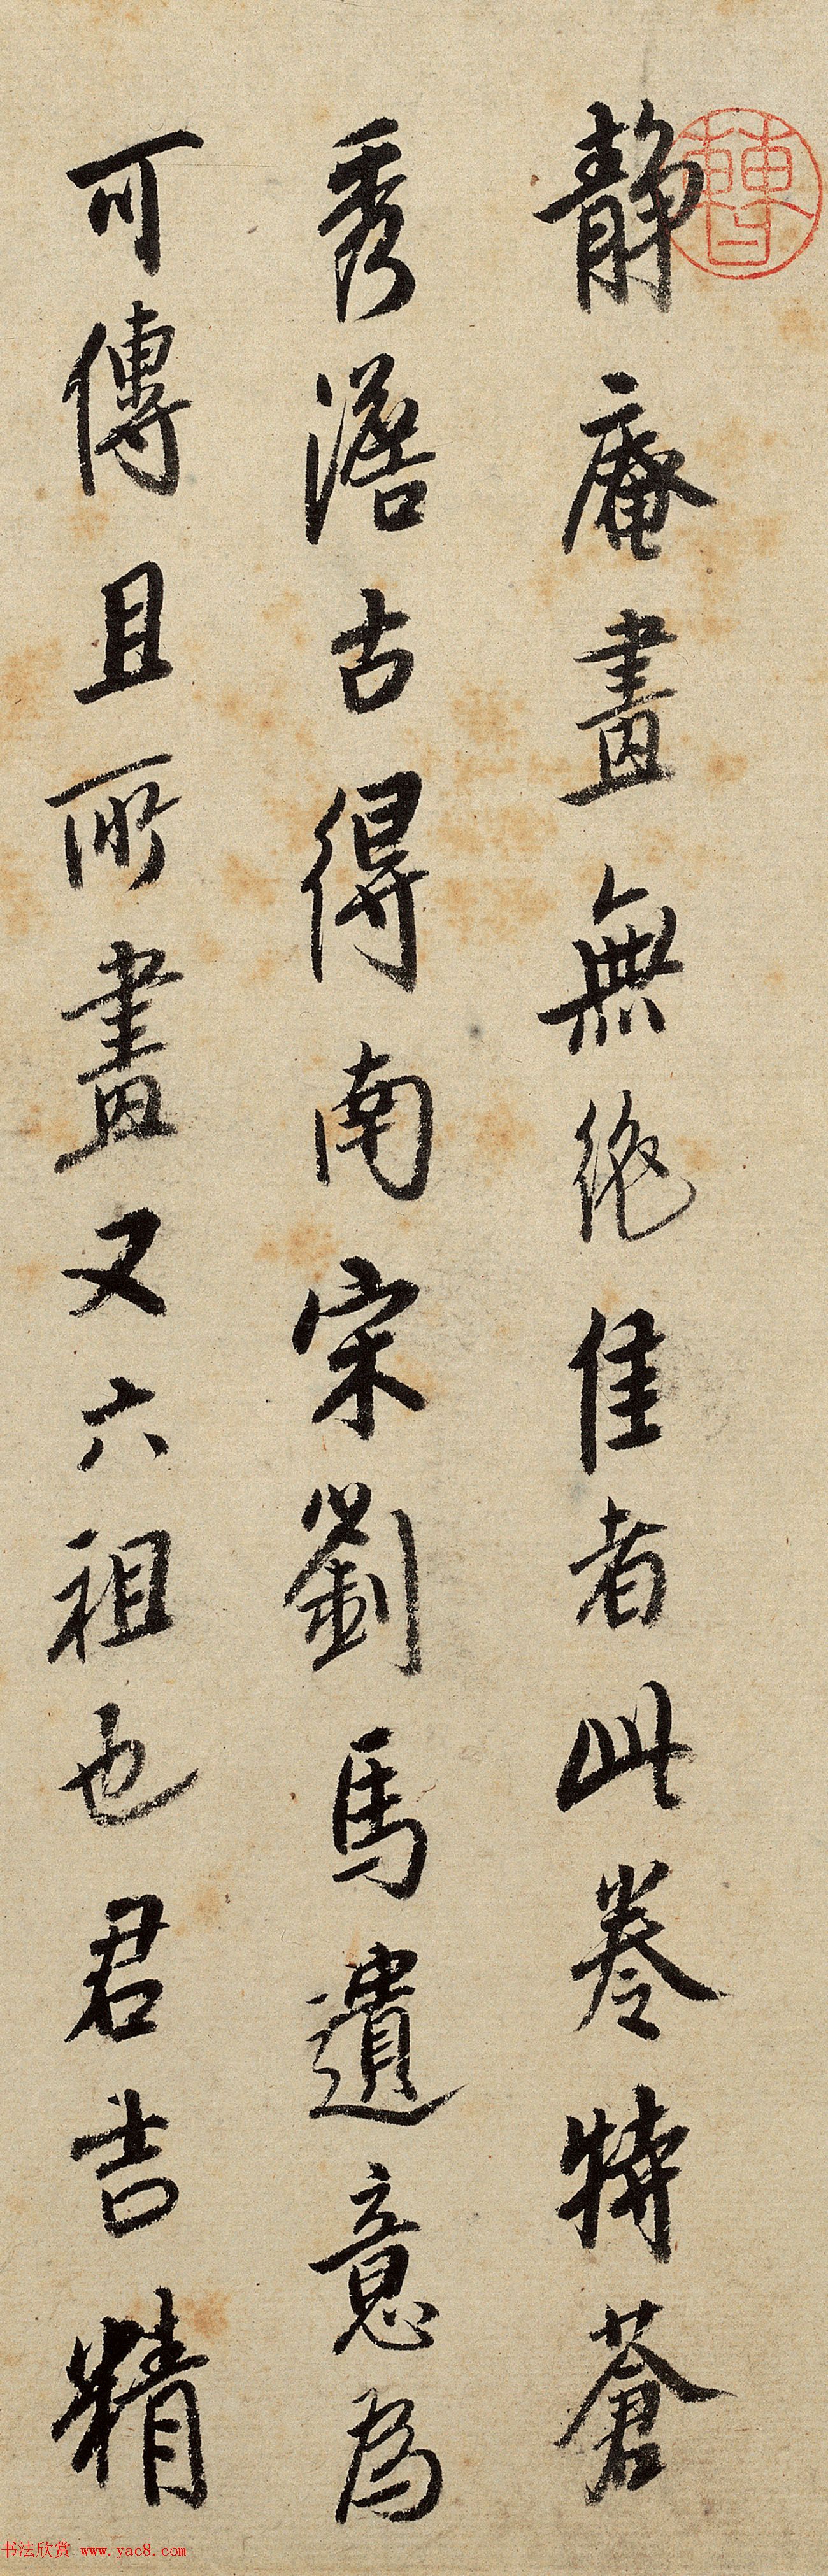 靜庵畫無絶佳者此卷特蒼
秀澹古得南宋劉馬遺意為
可傳且所畫又六祖也君吉精
书法欣赏 www.yac8.com